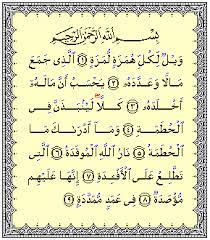 بِسْمِ اللَّهِ الرَّحْمَٰنِ الرَّحِيمِ
وَيْلٌ لِّكُلِّ هُمَزَةٍ لُّمَزَةٍ ۝١ الَّذِي جَمَعَ
مَالًا وَعَدَّدَهُ ۝٢ يَحْسَبُ أَنَّ مَالَهُ
أَخْلَدَهُ ۝٣ كَلَّا لَيُنبَذَنَّ فِي
الْحُطَمَةِ ۝٤ وَمَا أَدْرَاكَ مَا
الْحُطَمَةُ ۝٥ نَارُ اللَّهِ الْمُوقَدَةُ ۝٦ الَّتِي
تَطَّلِعُ عَلَى الْأَفْئِدَةِ ۝٧ إِنَّهَا عَلَيْهِم
مُّؤْصَدَةٌ ۝٨ فِي عَمَدٍ مُّمَدَّدَةٍ ۝٩